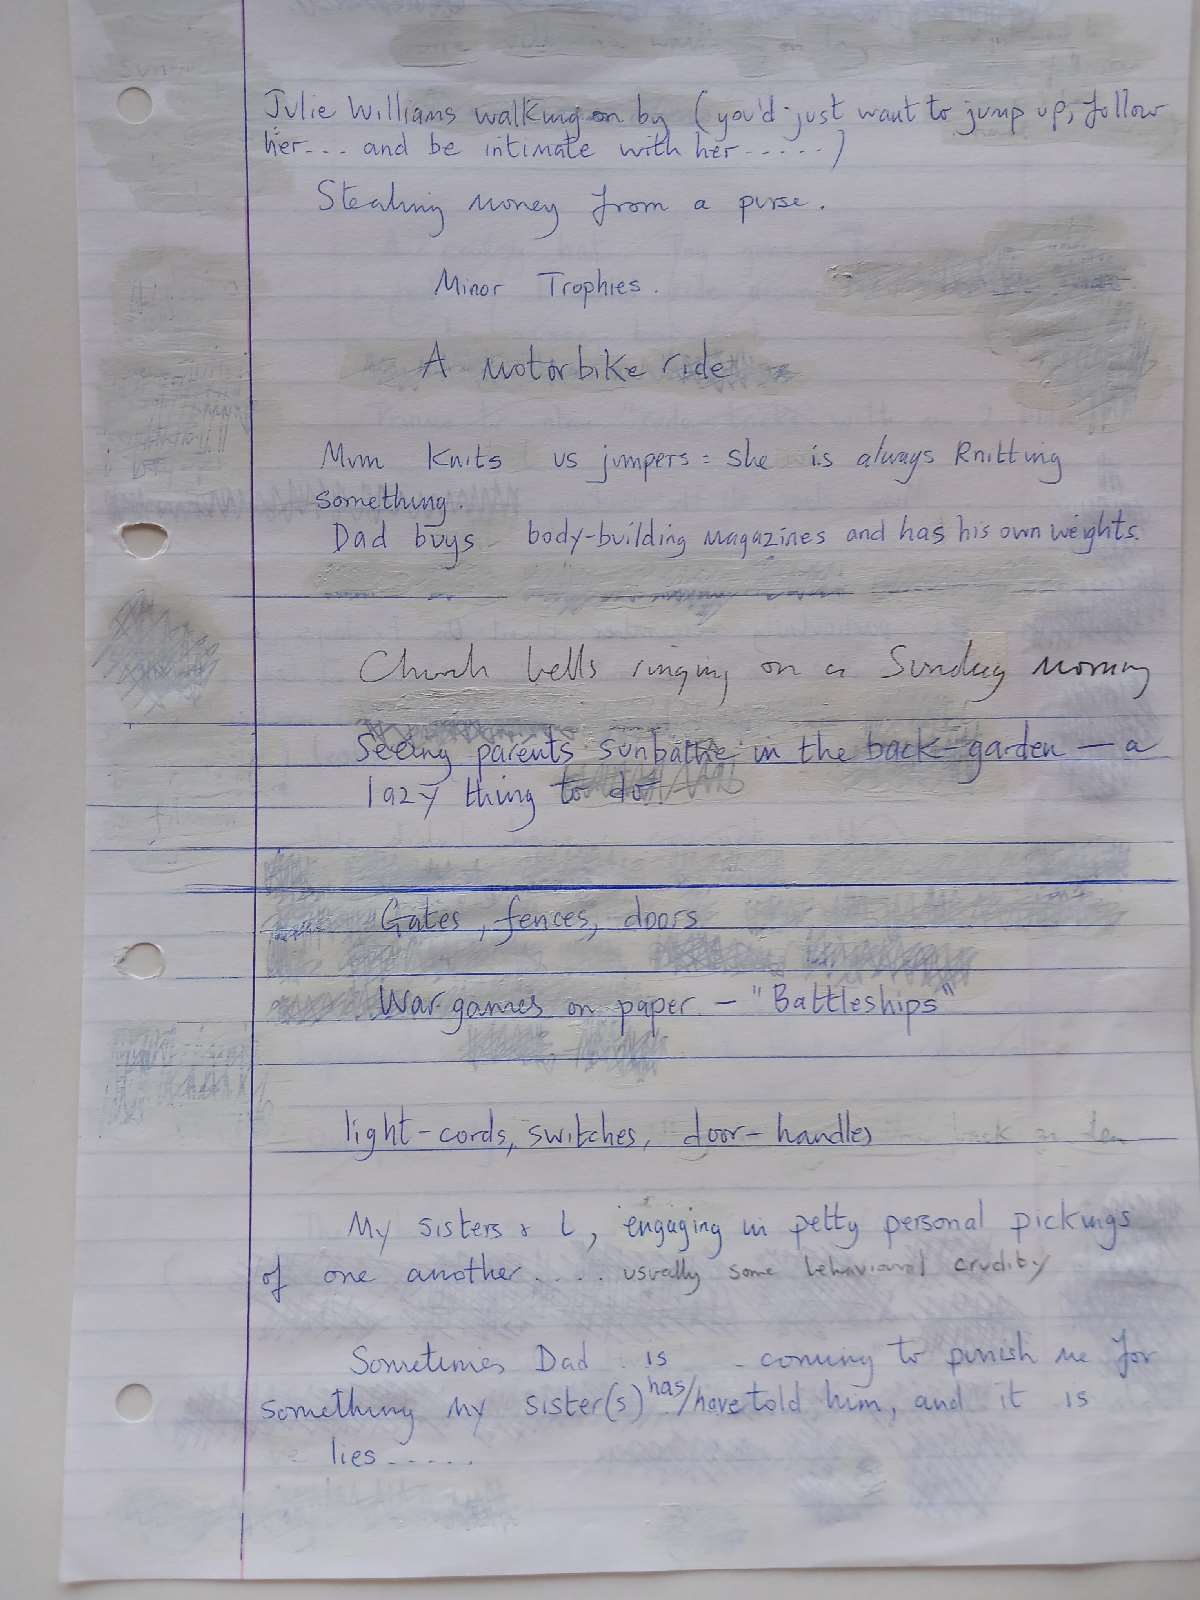 Julie Williams walking on by (you'd just want to jump up, follow
her.... and be intimate with her......)
Stealing money from a purse.
Minor Trophies.
A motorbike ride
Mum knits us jumpers = she is always knitting
something.
Dad buys body-building magazines and has his own weights.
Church bells ringing on a Sunday morning
Seeing parents sunbathe in the back-garden — a
lazy thing to do
Gates, fences, doors
War games on paper - "Battleships"
light-cords, switches, door-handles
My sisters & I, engaging in petty personal pickings
of one another..... usually some behavioural crudity
Sometimes Dad is coming to punish me for
something my sister(s) has/have told him, and it is
lies......